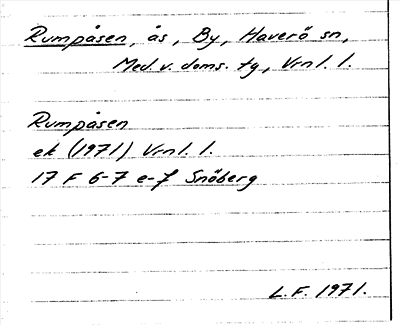 Rumpåsen, ås, By, Haverö sn,
Med. v. doms. tg, Vrnl. l.
Rumpåsen
ek (1971) Vrnl. l.
17 F 6-7 e-f Snöberg
L.F. 1971.